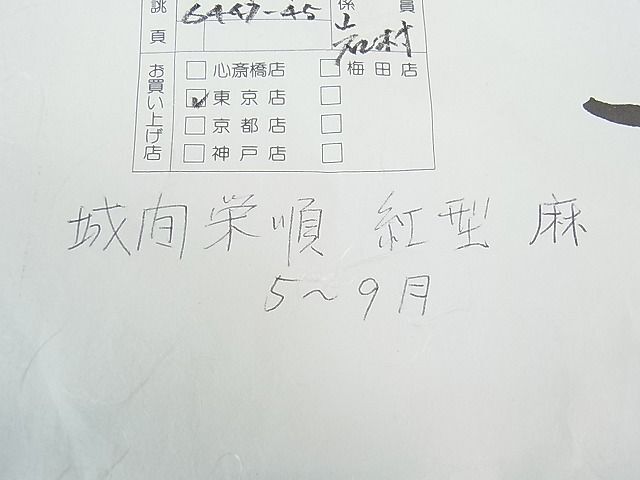 誂 6447-45 係員
頁 山岩村
お買い上げ店
心斎橋店 梅田店
東京店
京都店
神戸店
城間栄順 紅型 麻
5〜9月